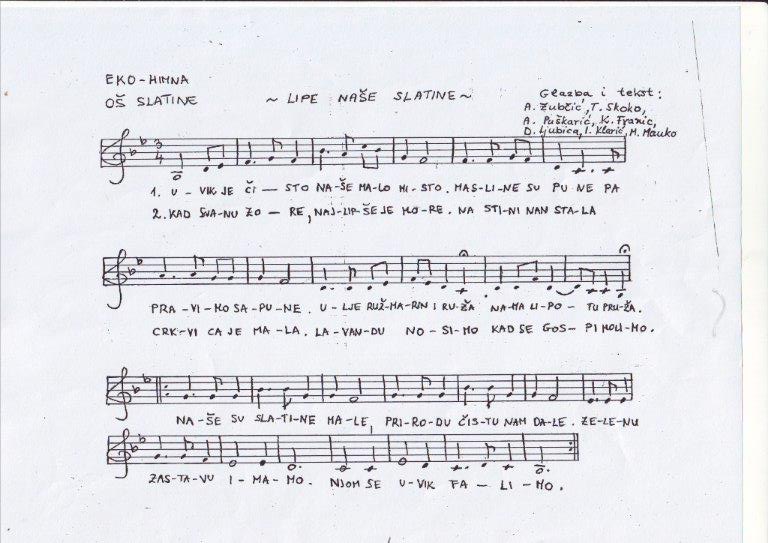 EKO-HIMNA
OŠ SLATINE
~ LIPE NAŠE SLATINE ~
Glazba i tekst:
A. Zubčić, T. Skoko,
A. Puškarić, K. Franic,
D. Ljubica, I. Klarić, M. Mauko
3
4
1. U - VIK JE ČI — STO NA-ŠE MA-LO MI-STO. MAS-LI-NE SU PU-NE PA
2. KAD SVA-NU ZO — RE, NAJ-LIP-ŠE JE MO-RE. NA STI-NI NAN STA-LA
PRA-VI-MO SA-PU-NE. U-LJE RUŽ-MA-RIN I RU-ŽA NA-MA LI-PO- TU PRU-ŽA.
CRK-VI CA JE MA-LA. LA-VAN-DU NO-SI-MO KAD SE GOS-PI MOLI-MO.
NA-ŠE SU SLA-TI-NE MA-LE, PRI-RO-DU ČIS-TU NAM DA-LE. ZE-LE-NU
ZAS-TA-VU I-MA-MO. NJOM SE U-VIK FA — LI-MO.